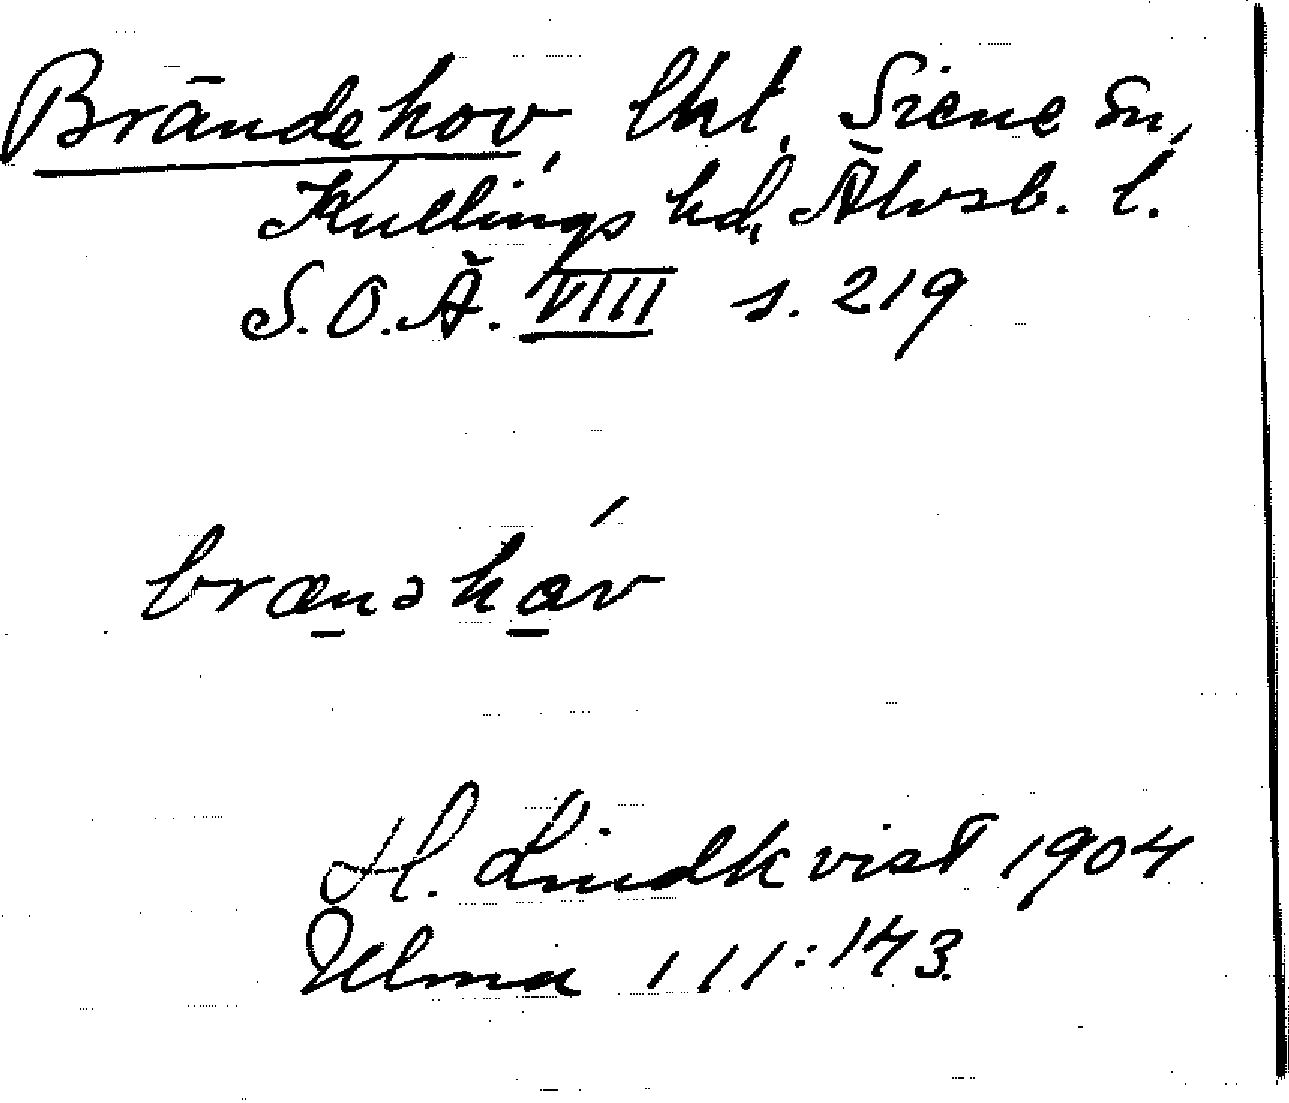 Brändehov, lht, Siene sn,
Kullings hd, Älvsb. l.
S.O.Ä. VIII s. 219
brænəhav
H. Lindkvist 1904
Ulma 111:143.